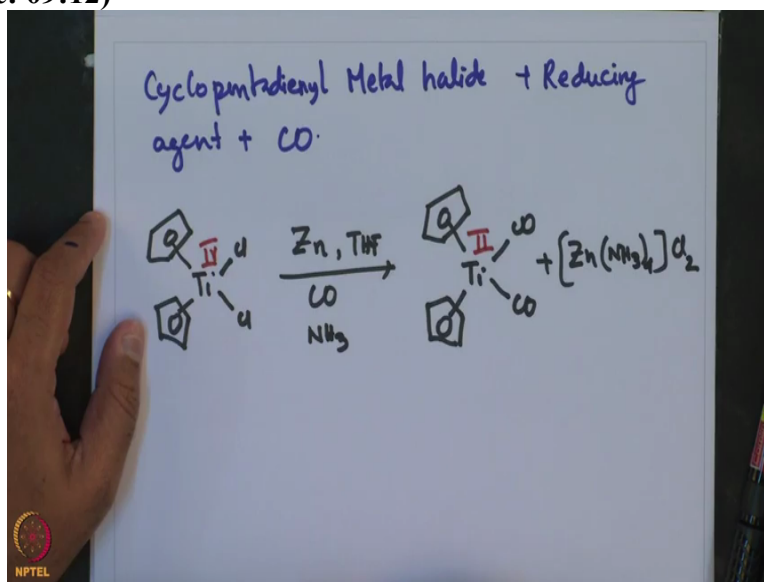 Cyclopentadienyl Metal halide + Reducing
agent + CO.
IV
Ti
Cl
Cl
Zn, THF
CO
NH3
II
Ti
CO
CO
+ [Zn(NH3)4]Cl2
NPTEL